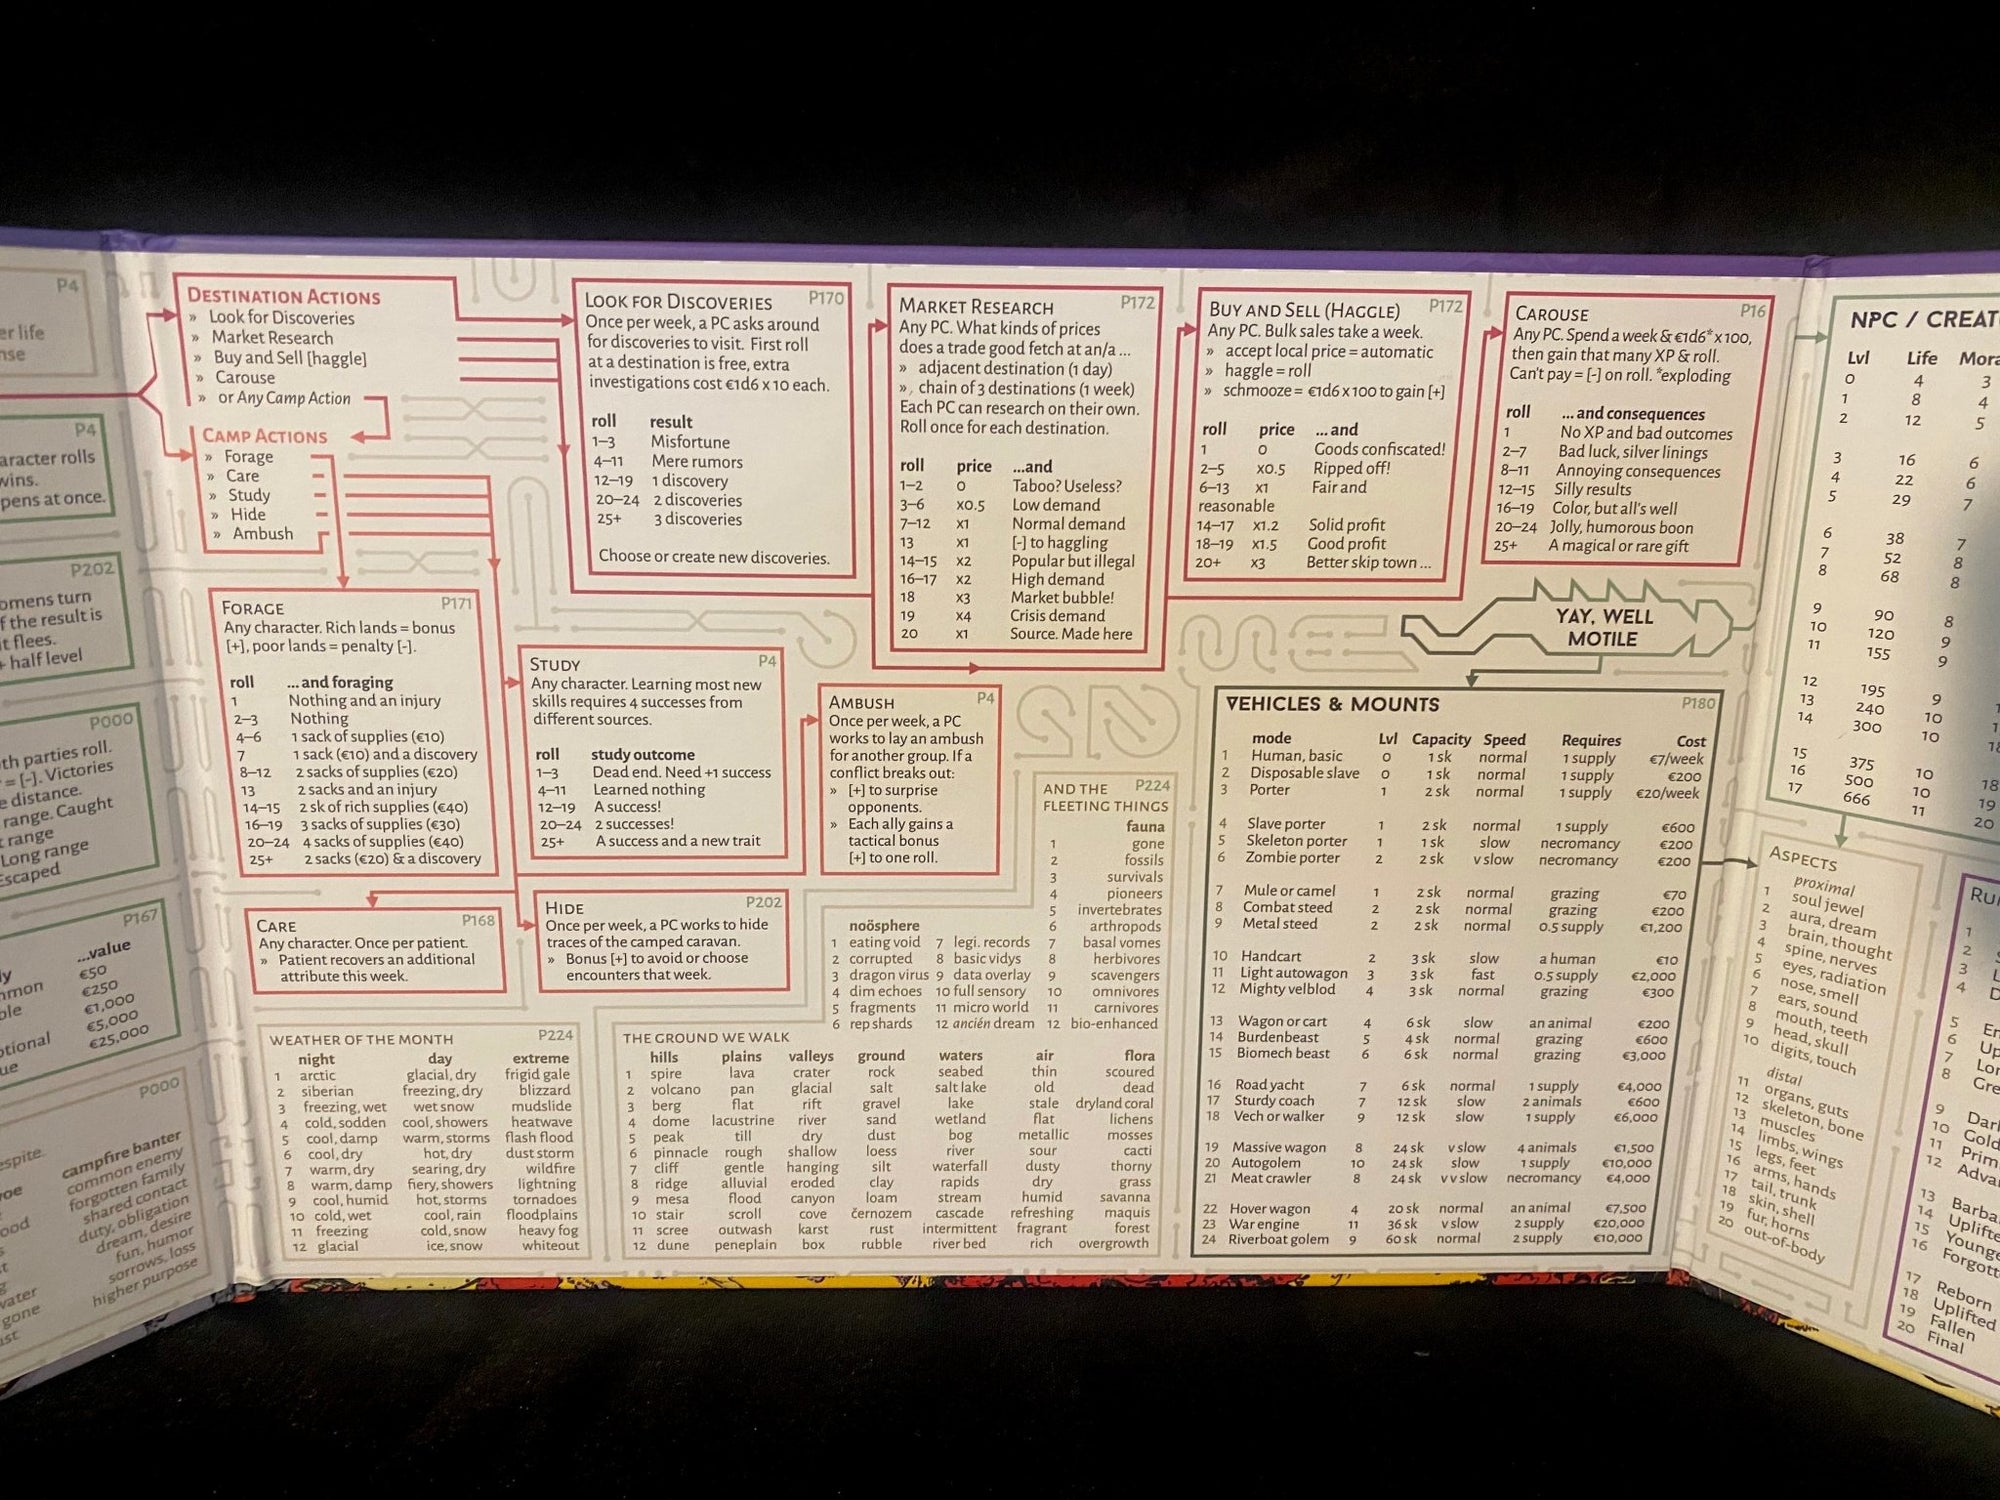 P4
er life
nse
P4
aracter rolls
wins.
pens at once.
P202
omens turn
f the result is
it flees.
+ half level
P000
th parties roll.
= [-]. Victories
e distance.
range. Caught
range
Long range
Escaped
P167
...value
€50
mmon €250
ble €1,000
€5,000
otional €25,000
ue
P000
espite.
campfire banter
common enemy
forgotten family
shared contact
duty, obligation
dream, desire
fun, humor
sorrows, loss
higher purpose
DESTINATION ACTIONS
» Look for Discoveries
» Market Research
» Buy and Sell [haggle]
» Carouse
» or Any Camp Action
CAMP ACTIONS
» Forage
» Care
» Study
» Hide
» Ambush
LOOK FOR DISCOVERIES P170
Once per week, a PC asks around
for discoveries to visit. First roll
at a destination is free, extra
investigations cost €1d6 x 10 each.
roll result
1–3 Misfortune
4–11 Mere rumors
12–19 1 discovery
20–24 2 discoveries
25+ 3 discoveries
Choose or create new discoveries.
MARKET RESEARCH P172
Any PC. What kinds of prices
does a trade good fetch at an/a ...
» adjacent destination (1 day)
» chain of 3 destinations (1 week)
Each PC can research on their own.
Roll once for each destination.
roll price ...and
1–2 0 Taboo? Useless?
3–6 x0.5 Low demand
7–12 x1 Normal demand
13 x1 [-] to haggling
14–15 x2 Popular but illegal
16–17 x2 High demand
18 x3 Market bubble!
19 x4 Crisis demand
20 x1 Source. Made here
BUY AND SELL (HAGGLE) P172
Any PC. Bulk sales take a week.
» accept local price = automatic
» haggle = roll
» schmooze = €1d6 x 100 to gain [+]
roll price ...and
1 0 Goods confiscated!
2–5 x0.5 Ripped off!
6–13 x1 Fair and
reasonable
14–17 x1.2 Solid profit
18–19 x1.5 Good profit
20+ x3 Better skip town ...
CAROUSE P16
Any PC. Spend a week & €1d6* x 100,
then gain that many XP & roll.
Can't pay = [-] on roll. *exploding
roll ...and consequences
1 No XP and bad outcomes
2–7 Bad luck, silver linings
8–11 Annoying consequences
12–15 Silly results
16–19 Color, but all's well
20–24 Jolly, humorous boon
25+ A magical or rare gift
FORAGE P171
Any character. Rich lands = bonus
[+], poor lands = penalty [-].
roll ...and foraging
1 Nothing and an injury
2–3 Nothing
4–6 1 sack of supplies (€10)
7 1 sack (€10) and a discovery
8–12 2 sacks of supplies (€20)
13 2 sacks and an injury
14–15 2 sk of rich supplies (€40)
16–19 3 sacks of supplies (€30)
20–24 4 sacks of supplies (€40)
25+ 2 sacks (€20) & a discovery
STUDY P4
Any character. Learning most new
skills requires 4 successes from
different sources.
roll study outcome
1–3 Dead end. Need +1 success
4–11 Learned nothing
12–19 A success!
20–24 2 successes!
25+ A success and a new trait
AMBUSH P4
Once per week, a PC
works to lay an ambush
for another group. If a
conflict breaks out:
» [+] to surprise
opponents.
» Each ally gains a
tactical bonus
[+] to one roll.
CARE P168
Any character. Once per patient.
» Patient recovers an additional
attribute this week.
HIDE P202
Once per week, a PC works to hide
traces of the camped caravan.
» Bonus [+] to avoid or choose
encounters that week.
YAY, WELL
MOTILE
AND THE P224
FLEETING THINGS
fauna
1 gone
2 fossils
3 survivals
4 pioneers
5 invertebrates
6 arthropods
7 basal vomes
8 herbivores
9 scavengers
10 omnivores
11 carnivores
12 bio-enhanced
noösphere
1 eating void 7 legi. records
2 corrupted 8 basic vidys
3 dragon virus 9 data overlay
4 dim echoes 10 full sensory
5 fragments 11 micro world
6 rep shards 12 ancién dream
WEATHER OF THE MONTH P224
night day extreme
1 arctic glacial, dry frigid gale
2 siberian freezing, dry blizzard
3 freezing, wet wet snow mudslide
4 cold, sodden cool, showers heatwave
5 cool, damp warm, storms flash flood
6 cool, dry hot, dry dust storm
7 warm, dry searing, dry wildfire
8 warm, damp fiery, showers lightning
9 cool, humid hot, storms tornadoes
10 cold, wet cool, rain floodplains
11 freezing cold, snow heavy fog
12 glacial ice, snow whiteout
THE GROUND WE WALK
hills plains valleys ground waters air flora
1 spire lava crater rock seabed thin scoured
2 volcano pan glacial salt salt lake old dead
3 berg flat rift gravel lake stale dryland coral
4 dome lacustrine river sand wetland flat lichens
5 peak till dry dust bog metallic mosses
6 pinnacle rough shallow loess river sour cacti
7 cliff gentle hanging silt waterfall dusty thorny
8 ridge alluvial eroded clay rapids dry grass
9 mesa flood canyon loam stream humid savanna
10 stair scroll cove černozem cascade refreshing maquis
11 scree outwash karst rust intermittent fragrant forest
12 dune peneplain box rubble river bed rich overgrowth
VEHICLES & MOUNTS P180
mode Lvl Capacity Speed Requires Cost
1 Human, basic 0 1 sk normal 1 supply €7/week
2 Disposable slave 0 1 sk normal 1 supply €200
3 Porter 1 2 sk normal 1 supply €20/week
4 Slave porter 1 2 sk normal 1 supply €600
5 Skeleton porter 1 1 sk slow necromancy €200
6 Zombie porter 2 2 sk v slow necromancy €200
7 Mule or camel 1 2 sk normal grazing €70
8 Combat steed 2 2 sk normal grazing €200
9 Metal steed 2 2 sk normal 0.5 supply €1,200
10 Handcart 2 3 sk slow a human €10
11 Light autowagon 3 3 sk fast 0.5 supply €2,000
12 Mighty velblod 4 3 sk normal grazing €300
13 Wagon or cart 4 6 sk slow an animal €200
14 Burdenbeast 5 4 sk normal grazing €600
15 Biomech beast 6 6 sk normal grazing €3,000
16 Road yacht 7 6 sk normal 1 supply €4,000
17 Sturdy coach 7 12 sk slow 2 animals €600
18 Vech or walker 9 12 sk slow 1 supply €6,000
19 Massive wagon 8 24 sk v slow 4 animals €1,500
20 Autogolem 10 24 sk slow 1 supply €10,000
21 Meat crawler 8 24 sk v v slow necromancy €4,000
22 Hover wagon 4 20 sk normal an animal €7,500
23 War engine 11 36 sk v slow 2 supply €20,000
24 Riverboat golem 9 60 sk normal 2 supply €10,000
NPC / CREAT
Lvl Life Mora
0 4 3
1 8 4
2 12 5
3 16 6
4 22 6
5 29 7
6 38 7
7 52 8
8 68 8
9 90 8
10 120 9
11 155 9
12 195 9
13 240 10
14 300 10
15 375 10
16 500 10
17 666 11
18
19
20
ASPECTS
proximal
1 soul jewel
2 aura, dream
3 brain, thought
4 spine, nerves
5 eyes, radiation
6 nose, smell
7 ears, sound
8 mouth, teeth
9 head, skull
10 digits, touch
distal
11 organs, guts
12 skeleton, bone
13 muscles
14 limbs, wings
15 legs, feet
16 arms, hands
17 tail, trunk
18 skin, shell
19 fur, horns
20 out-of-body
RU
1
2
3
4
5 En
6 Up
7 Lon
8 Gre
9 Dark
10 Gold
11 Prim
12 Adva
13 Barba
14 Uplifte
15 Younge
16 Forgott
17 Reborn
18 Uplifted
19 Fallen
20 Final